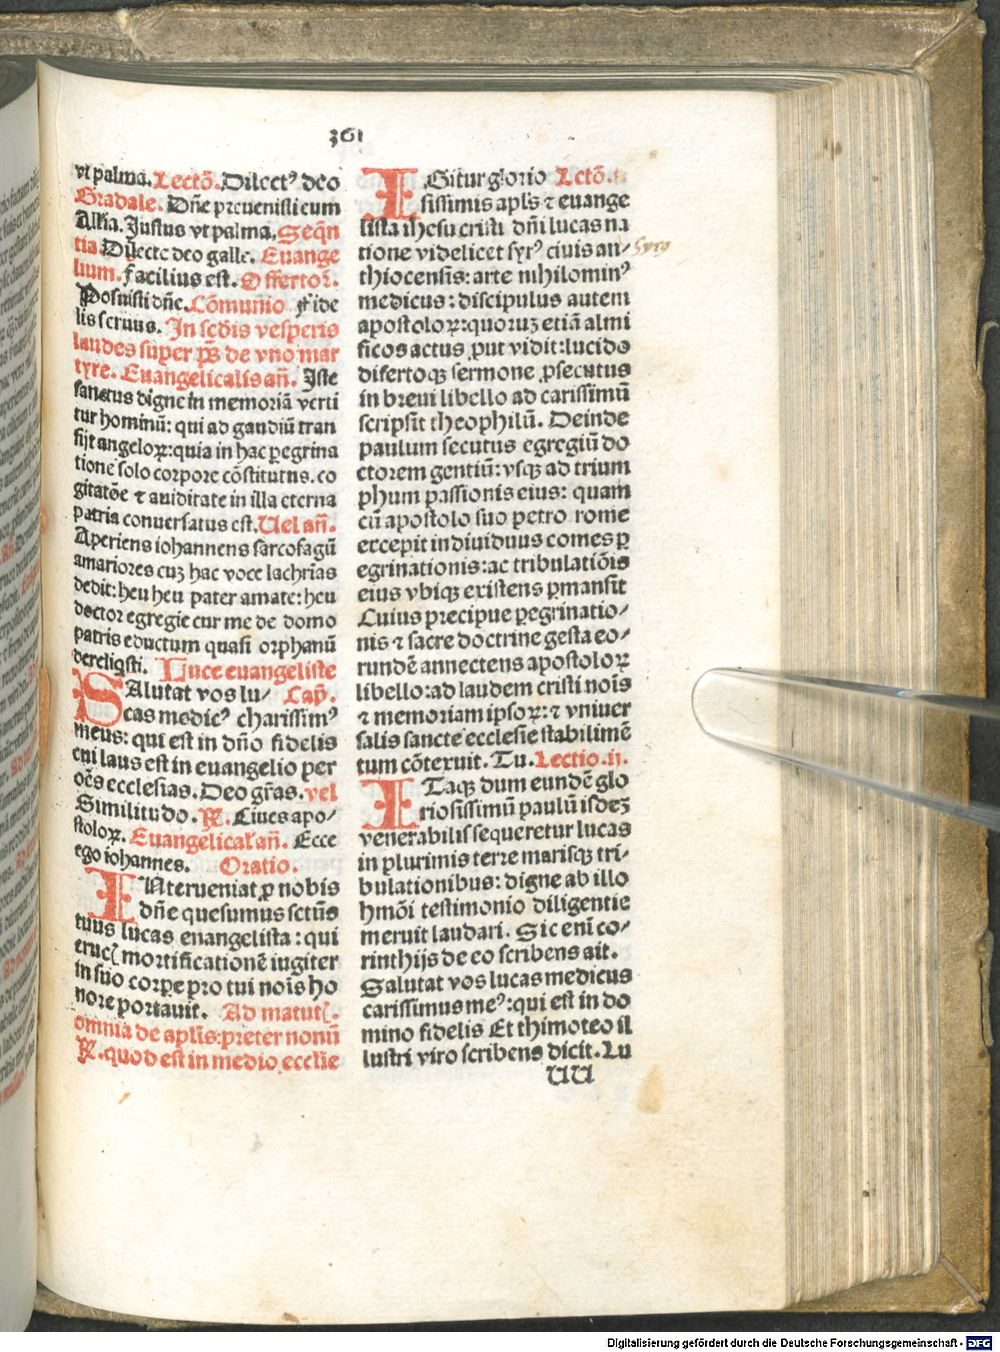 361
vt palma. Lectō. Dilect⁹ deo
Gradale. Dn̄e preuenisti eum
Alľia. Justus vt palma. Seq̄n
tia. Dilecte deo galle. Euange
lium. Facilius est. Offertoř.
Posuisti dn̄e. Cōmunio Fide
lis seruus. In scd̄is vesperis
laudes super p̄s de vno mar
tyre. Euangelicalis an̄. Iste
sanctus digne in memoriā verti
tur hominū: qui ad gaudiū tran
sijt angeloꝝ: quia in hac ꝑegrina
tione solo corpore cōstitutus. co
gitatōe ⁊ auiditate in illa eterna
patria conuersatus est. Uel an̄.
Aperiens iohannens sarcofagū
amariores cuʒ hac voce lachrīas
dedit: heu heu pater amate: heu
doctor egregie cur me de domo
patris eductum quasi orphanū
dereliqsti. Luce euangeliste
SAlutat vos lu⸗ Cap̄.
cas medic⁹ charissim⁹
meus: qui est in dn̄o fidelis
cui laus est in euangelio per
oēs ecclesias. Deo gr̄as. vel
Similitudo. ℟. Ciues apo⸗
stoloꝝ. Euangelicaľ an̄. Ecce
ego iohannes. Oratio.
INterueniat ꝓ nobis
dn̄e quesumus sctūs
tuus lucas enangelista: qui
cruc̄ mortificationē iugiter
in suo corꝑe pro tui nōis ho
nore portauit. Ad matut̄.
omnia de apl̄is: preter nonū
℟. quod est in medio eccl̄ie
IGitur glorio Lctō. i
sissimis apl̄s ⁊ euange
lista ihesu cristi dn̄i lucas na
tione videlicet syr⁹ ciuis an⸗
Syro
thiocensis: arte nihilomin⁹
medicus: discipulus autem
apostoloꝝ: quoruʒ etiā almi
ficos actus ꝓut vidit: lucido
disertoqʒ sermone ꝓsecutus
in breui libello ad carissimū
scripsit theophilū. Deinde
paulum secutus egregiū do
ctorem gentiū: vsqʒ ad trium
phum passionis eius: quam
cū apostolo suo petro rome
excepit indiuiduus comes ꝑ
egrinationis: ac tribulatiōis
eius vbiqʒ existens ꝑmansit
Cuius precipue ꝑegrinatio⸗
nis ⁊ sacre doctrine gesta eo⸗
rundē annectens apostoloꝝ
libello: ad laudem cristi nōis
⁊ memoriam ipsoꝝ: ⁊ vniuer
salis sancte ecclesie stabilimē
tum cōtexuit. Tu. Lectio. ij.
ITaqʒ dum eundē glo
riosissimū paulū isdeʒ
venerabilis sequeretur lucas
in plurimis terre marisqʒ tri⸗
bulationibus: digne ab illo
hmōi testimonio diligentie
meruit laudari. Sic eni co⸗
rinthijs de eo scribens ait.
Salutat vos lucas medicus
carissimus me⁹: qui est in do
mino fidelis Et thimoteo il
lustri viro scribens dicit. Lu
UU
Digitalisierung gefördert durch die Deutsche Forschungsgemeinschaft - DFG